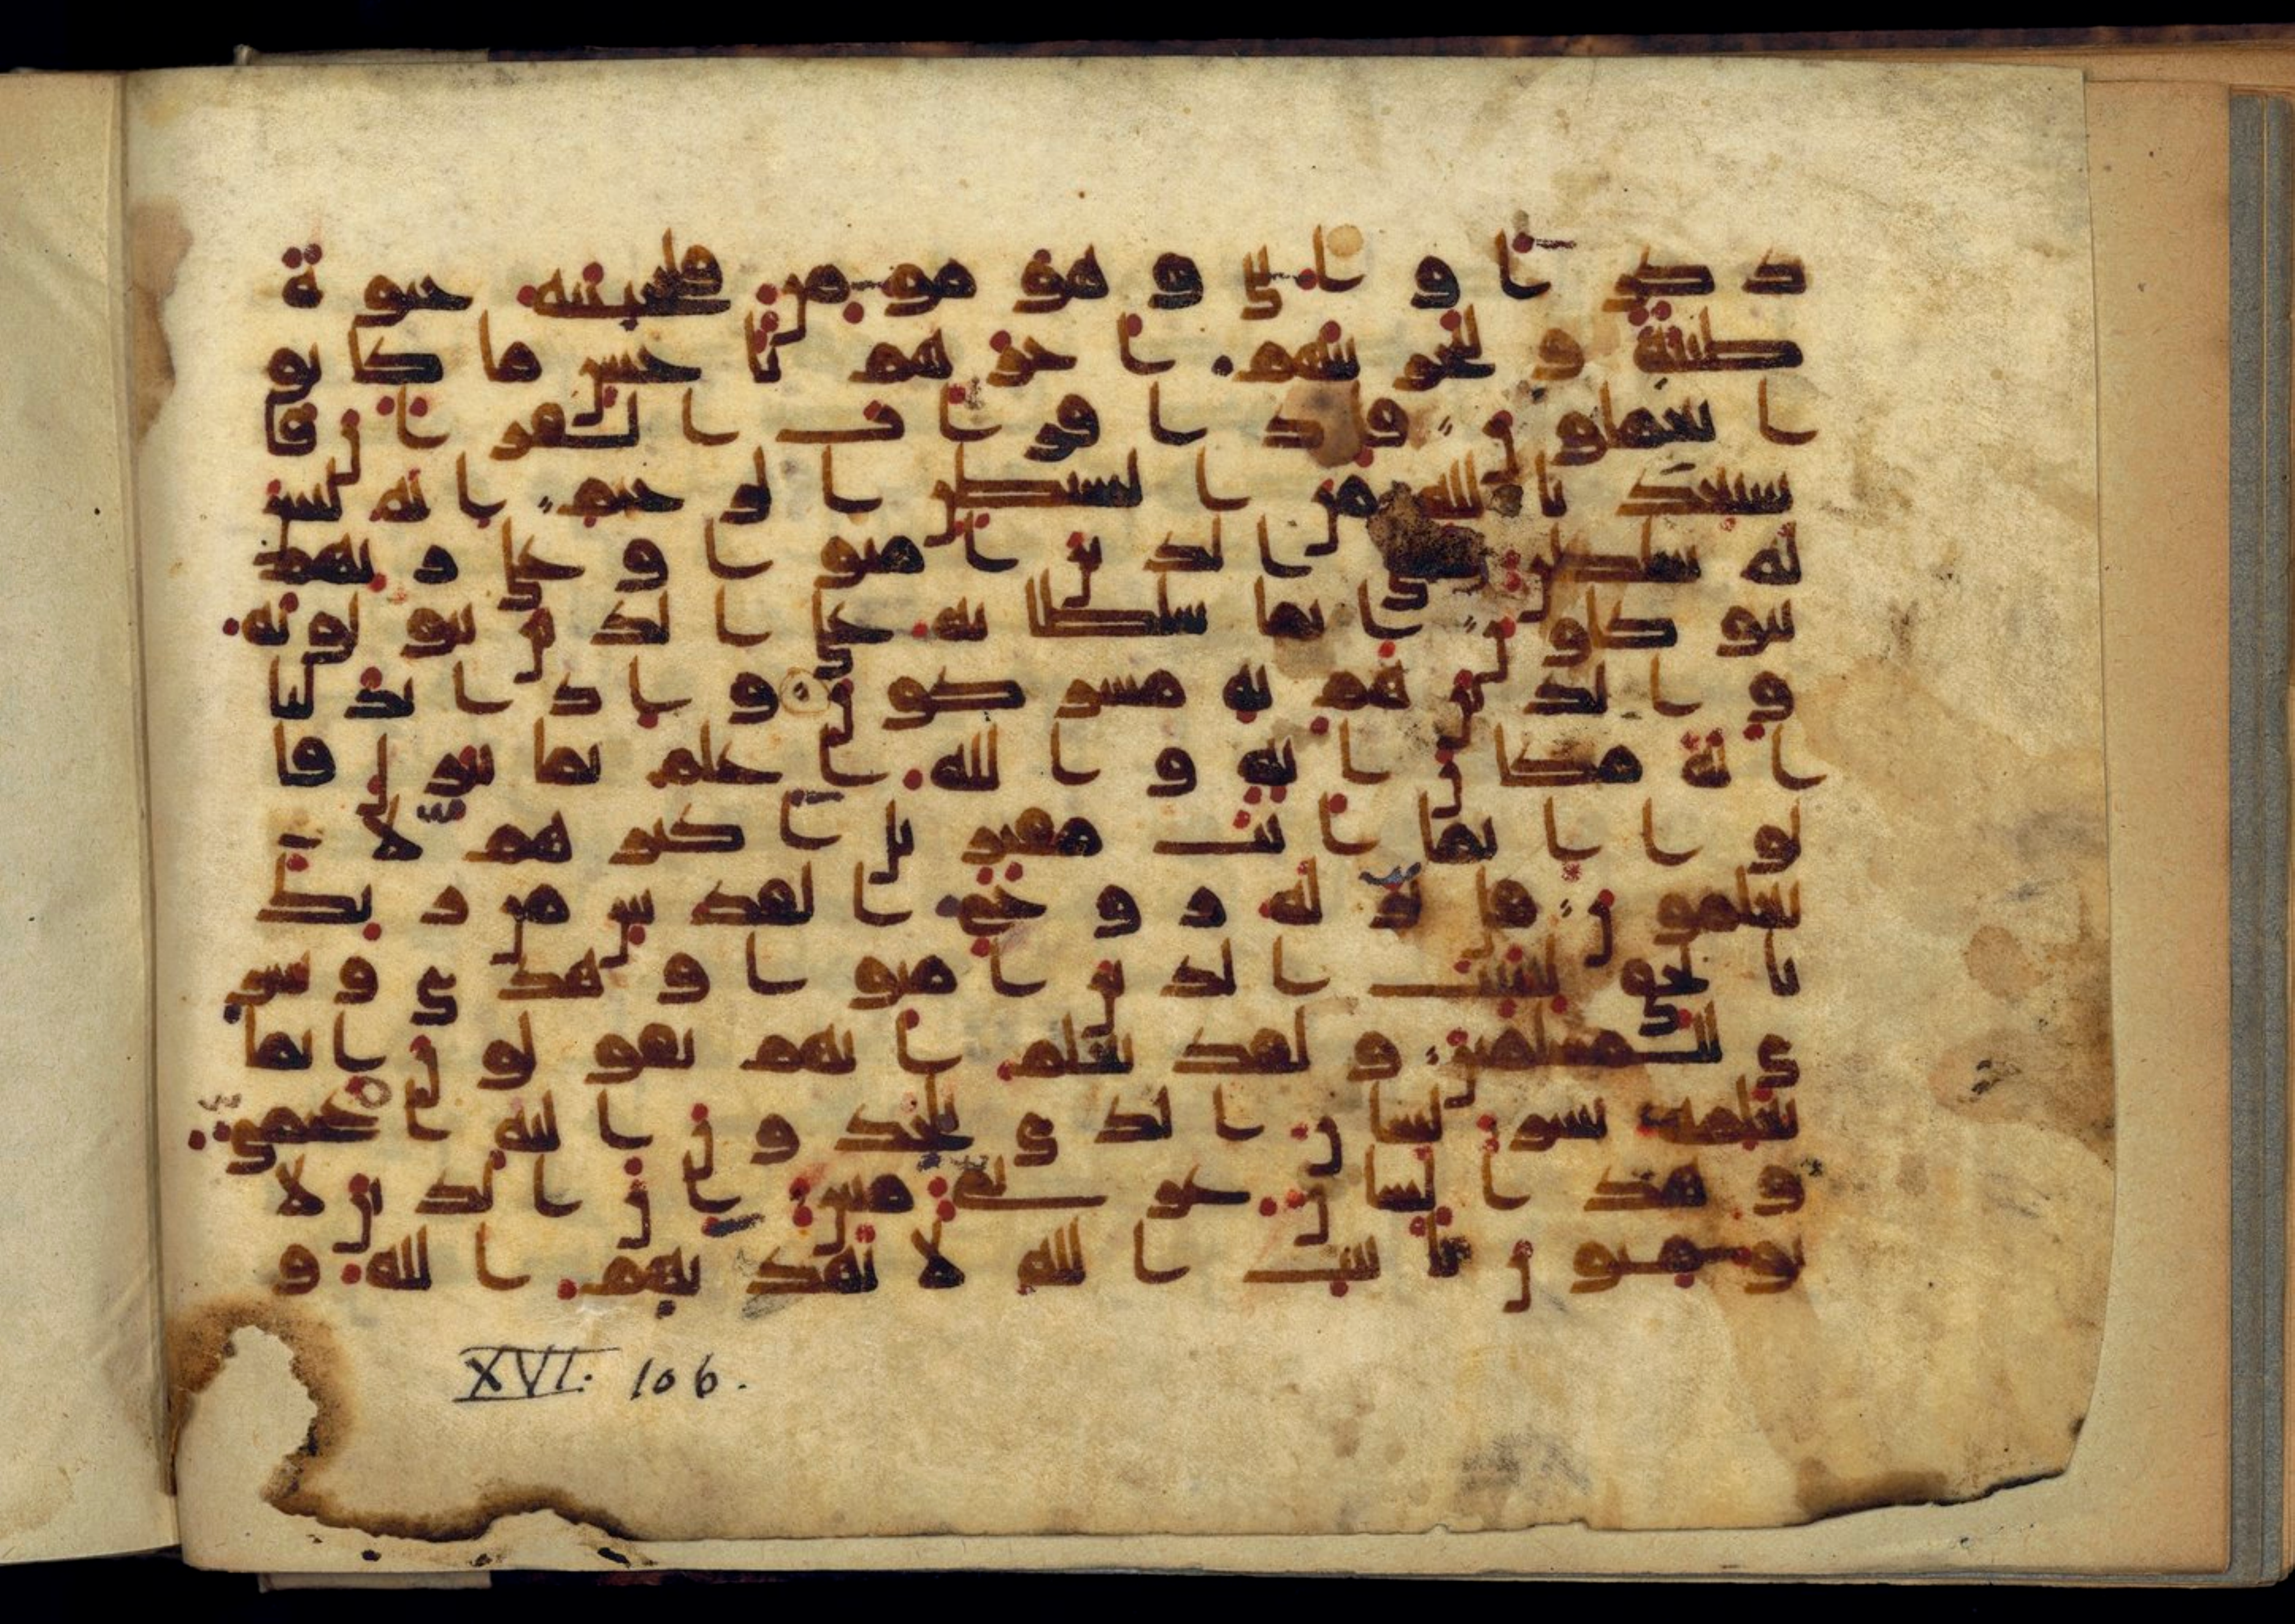 ذكر او انثى وهو مومن فلنحيينه حيوة
طيبة ولنجزينهم اجرهم باحسن ما كانو
ا يعملون فاذا قرات القران فا
ستعذ بالله من الشيطن الرجيم انه ليس
له سلطن على الذين امنوا وعلى ربهم
يتوكلون انما سلطانه على الذين يتولونه
والذين هم به مشركون واذا بدلنا
اية مكان اية والله اعلم بما ينزل قا
لوا انما انت مفتر بل اكثرهم لا
يعلمون قل نزله روح القدس من ربك
بالحق ليثبت الذين امنوا وهدى وبشر
ى للمسلمين ولقد نعلم انهم يقولون انما
يعلمه بشر لسان الذى يلحدون اليه اعجمى
وهذا لسان عربى مبين ان الذين لا
يومنون بايت الله لا يهديهم الله و
XVI. 106.